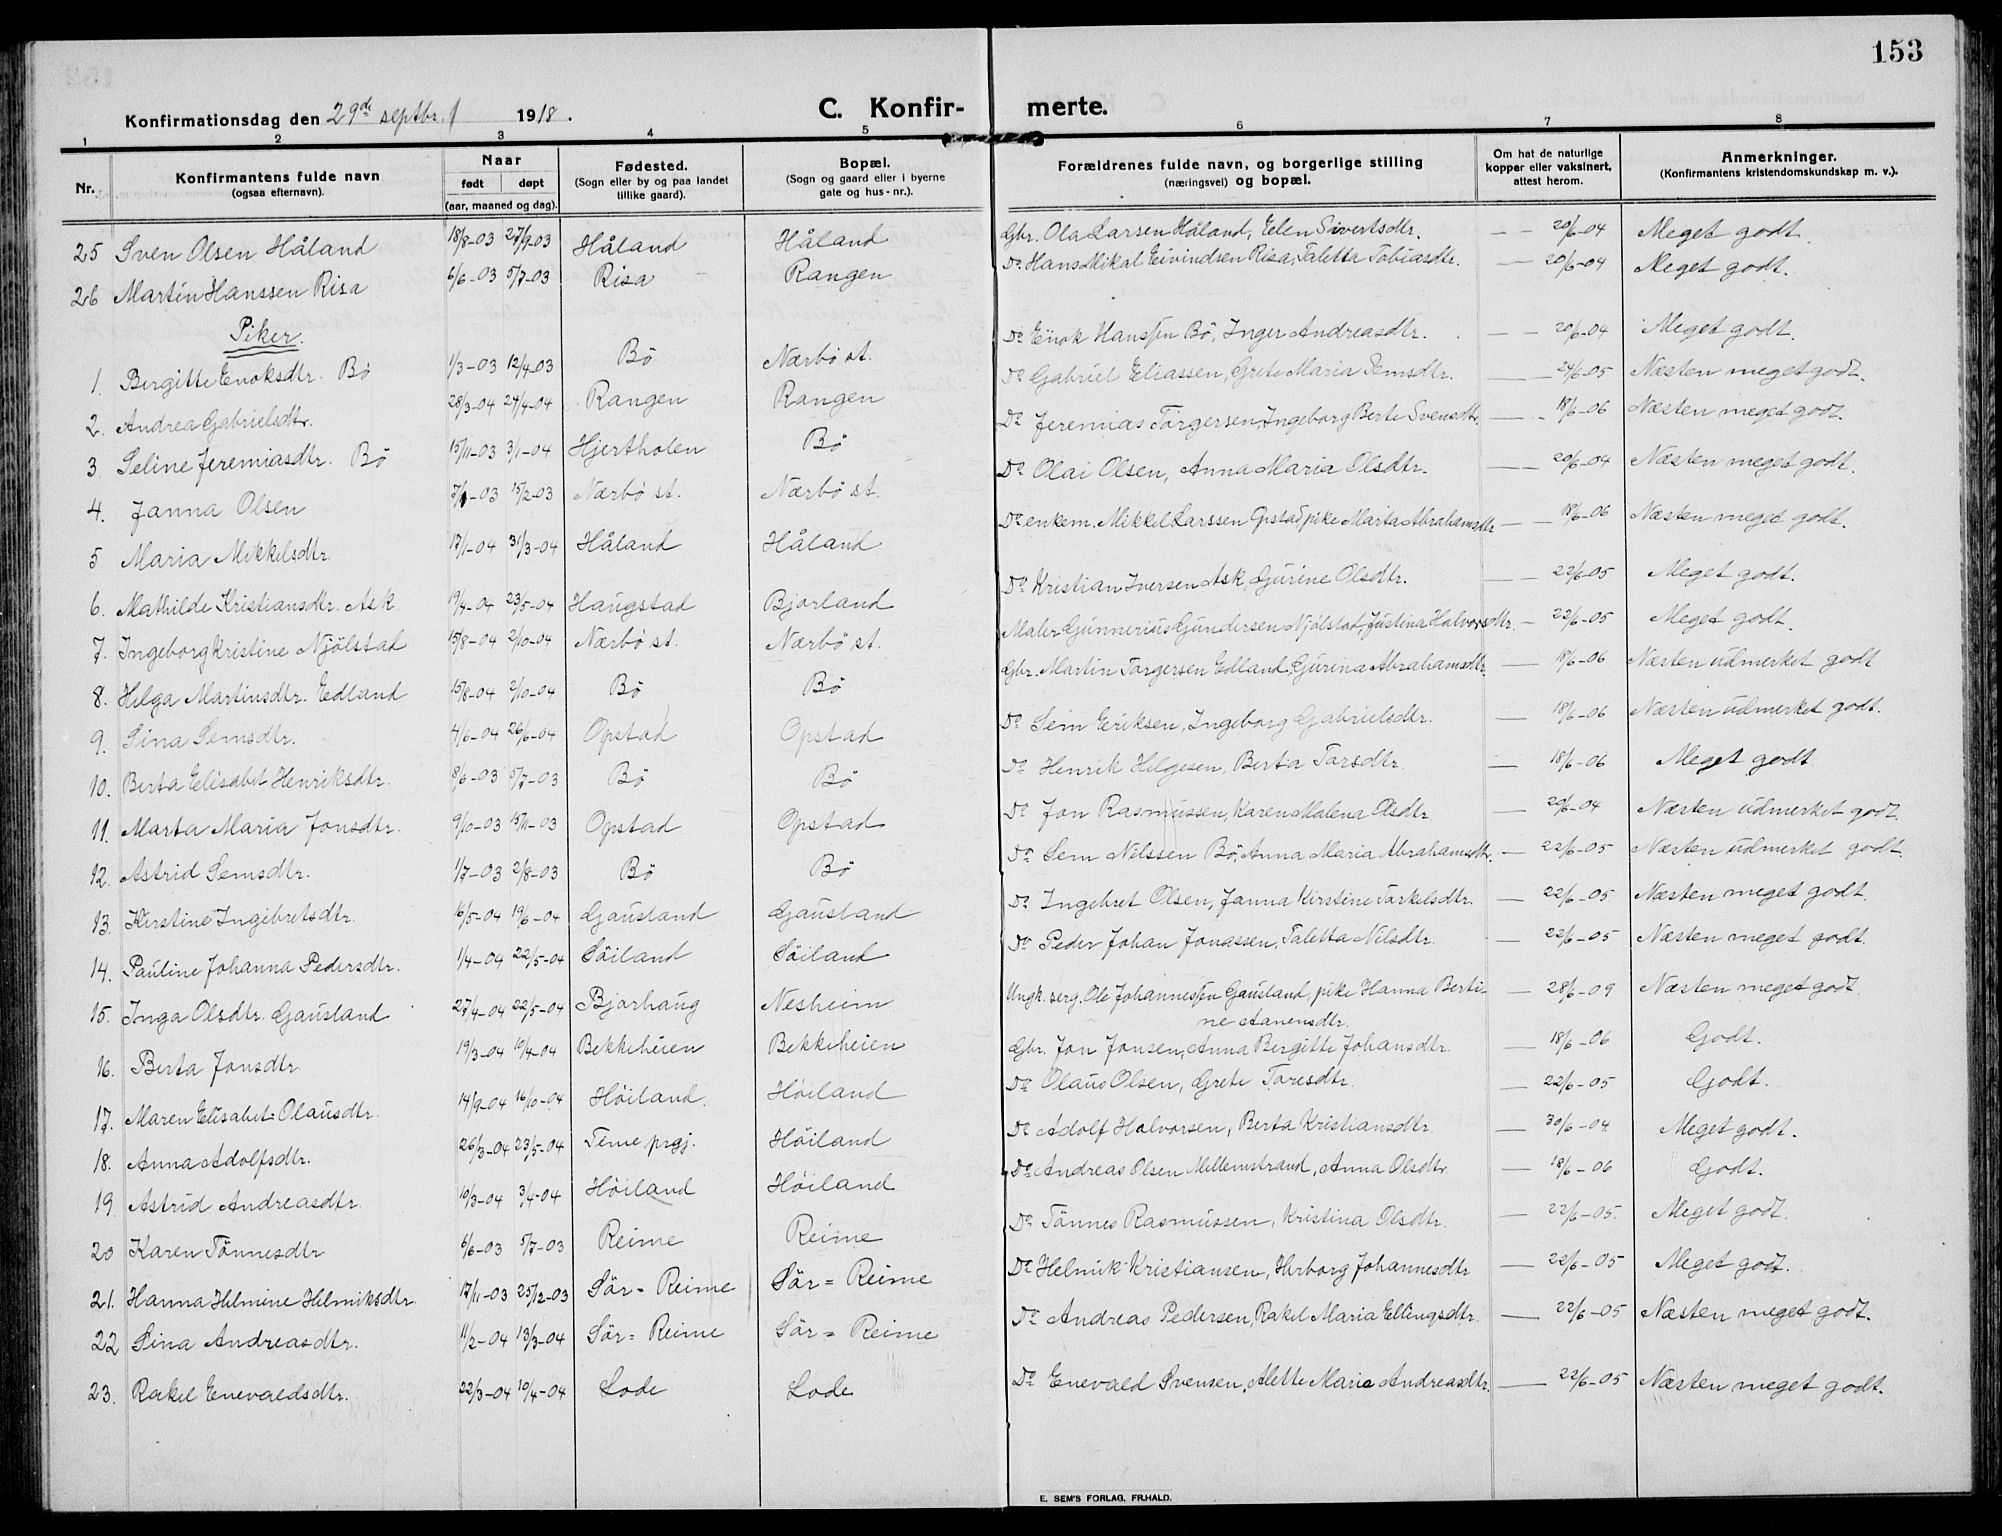 153
Konfirmationsdag den 29de septbr. 1918.
C. Konfirmerte.
1 2 3 4 5 6 7 8
Nr. Konfirmantens fulde navn (ogsaa efternavn). Naar født døpt (aar, maaned og dag). Fødested. (Sogn eller by og paa landet tillike gaard). Bopæl. (Sogn og gaard eller i byerne gate og hus-nr.). Forældrenes fulde navn, og borgerlige stilling (næringsvei) og bopæl. Om hat de naturlige kopper eller vaksinert, attest herom. Anmerkninger. (Konfirmantens kristendomskundskap m. v.).
25 Sven Olsen Håland 18/8-03 27/9-03 Håland Håland Gbr. Ola Larsen Håland, Elen Sivertsdtr. — — 20/6-04 Meget godt.
26 Martin Hanssen Risa 6/6-03 5/7-03 Risa Rangen Do Hans Mikal Eivindsen Risa, Taletta Tobiasdtr. — 20/6-04 Meget godt.
Piker.
1. Bergitte Enoksdtr. Bö 1/3-03 12/4-03 Bö Nærbö st. Do Enok Hanssen Bö, Inger Andreasdtr. — — 20/6-04 Meget godt.
2. Andrea Gabrielsdtr. 28/3-04 24/4-04 Rangen Rangen Do Gabriel Eliassen, Grete Maria Semsdtr. — 24/6-05 Næsten meget godt.
3. Seline Jeremiasdtr. Bö 15/11-03 3/1-04 Hjertholen Bö Do Jeremias Torgersen, Ingeborg Berte Svensdtr. — 18/6-06 Næsten meget godt.
4. Janna Olsen 7/1-03 15/2-03 Nærbö st. Nærbö st. Do Olai Olsen, Anna Maria Olsdtr. — 20/6-04 Næsten meget godt.
5 Maria Mikkelsdtr. 17/1-04 31/3-04 Håland Håland Do enkem. Mikkel Larssen Opstad, pike Marta Abrahamsdtr — 18/6-06 Næsten meget godt.
6. Mathilde Kristiansdtr. Ask 19/4-04 23/5-04 Haugstad Bjorland Do Kristian Iversen Ask, Gurine Olsdtr. — 22/6-05 Meget godt.
7. Ingeborg Kristine Njölstad 15/8-04 2/10-04 Nærbö st. Nærbö st. Maler Gunnerius Gundersen Njölstad, Justina Halvorsdtr. — 22/6-05 Meget godt.
8. Helga Martinsdtr. Edland 15/8-04 2/10-04 Bö Bö Gbr. Martin Torgersen Edland, Gurina Abrahamsdtr — 18/6-06 Næsten udmerket godt
9. Sina Semsdtr. 4/6-04 26/6-04 Opstad Opstad Do Sem Eriksen, Ingeborg Gabrielsdtr. — 18/6-06 Næsten udmerket godt.
10. Berta Elisabet Henriksdtr. 8/6-03 5/7-03 Bö Bö Do Henrik Helgesen, Berta Tarsdtr. — 18/6-06 Meget godt
11. Marta Maria Jonsdtr. 9/10-03 15/11-03 Opstad Opstad Do Jon Rasmussen, Karen Malena Olsdtr — 20/6-04 Næsten udmerket godt
12. Astrid Semsdtr. 1/7-03 2/8-03 Bö Bö Do Sem Nilssen Bö, Anna Maria Abrahamsdtr. — 22/6-05 Næsten udmerket godt
13. Kirstine Ingebretsdtr. 16/5-04 19/6-04 Gausland Gausland Do Ingebret Olsen, Janna Kirstine Torkelsdtr. — 22/6-05 Næsten meget godt.
14. Pauline Johanna Pedersdtr. 1/4-04 22/5-04 Söiland Söiland Do Peder Johan Jonassen, Taletta Nilsdtr. — 22/6-05 Næsten meget godt.
15. Inga Olsdtr. Gausland 27/4-04 22/5-04 Bjorhaug Nesheim Ungk. serg. Ole Johannessen Gausland, pike Hanna Berti- — 28/6-09 Næsten meget godt.
ne Aanensdtr.
16. Berta Jonsdtr. 19/3-04 10/4-04 Bekkeheien Bekkeheien Gbr. Jon Jonsen, Anna Bergitte Johansdtr. — 18/6-06 Godt.
17. Maren Elisabet Olausdtr. 14/9-04 16/10-04 Höiland. Höiland Do Olaus Olsen, Grete Taresdtr. — 22/6-05 Godt.
18. Anna Adolfsdtr. 26/3-04 23/5-04 Time prgj. Höiland Do Adolf Halvorsen, Berta Kristiansdtr. — 30/6-04 Meget godt.
19 Astrid Andreasdtr. 10/3-04 3/4-04 Höiland Höiland Do Andreas Olsen Mellemstrand, Anna Olsdtr — 18/6-06 Godt.
20 Karen Tönnesdtr 6/6-03 5/7-03 Reime Reime Do Tönnes Rasmussen, Kristina Olsdtr. — 22/6-05. Meget godt.
21. Hanna Helmine Helmiksdtr. 17/11-03 25/12-03 Sör=Reime Sör=Reime Do Helmik Kristiansen, Herborg Johannesdtr — 22/6-05 Meget godt.
22 Sina Andreasdtr. 11/2-04 13/3-04 Sör=Reime Sör=Reime Do Andreas Pedersen, Rakel Maria Ellingsdtr. — 22/6-05 Næsten meget godt.
23. Rakel Enevaldsdtr. 22/3-04 10/4-04 Lode Lode Do Enevald Svensen, Alette Marie Andreasdtr. — 22/6-05 Næsten meget godt.
E. SEM'S FORLAG, FR.HALD.